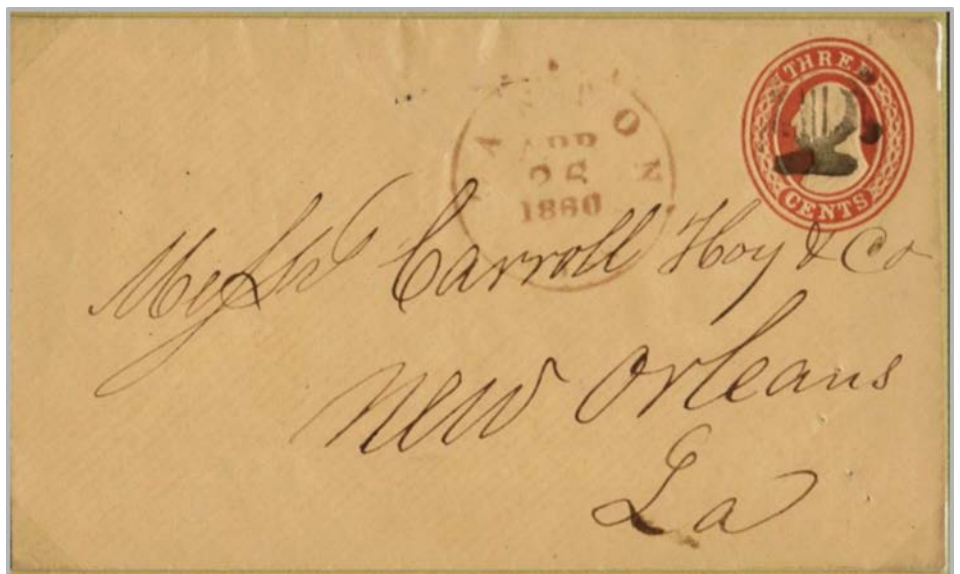 THREE
CENTS
APR
25
1860
Messrs Carroll Hoy & Co
New Orleans
La